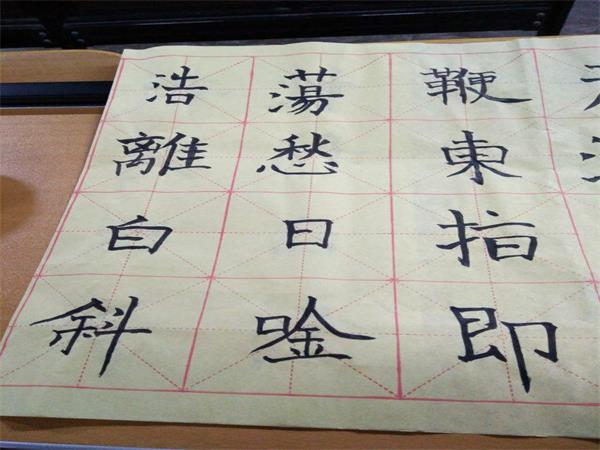 浩蕩鞭
離愁東
白日指
斜唫即